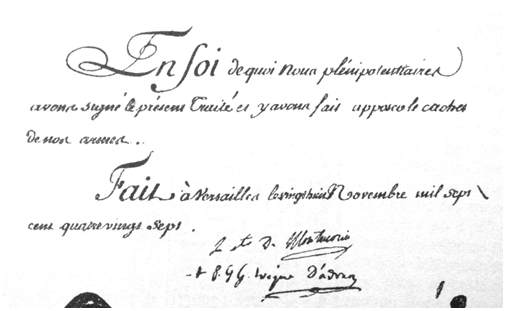 En foi de quoi Nous plénipotentiaires
avons signé le présent Traité et y avons fait apposer le cachet
de nos armes..
Fait à Versailles le vingt huit Novembre mil sept
cent quatre vingt sept.
Le Cte De Montmorin
+ P. J. G. évêque D'adran